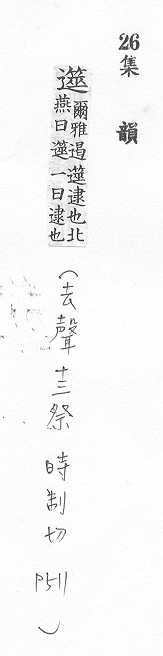 26集韻
遾爾雅遏遾逮也北
燕曰遾一曰逮也
（去聲十三祭 時制切 P511）